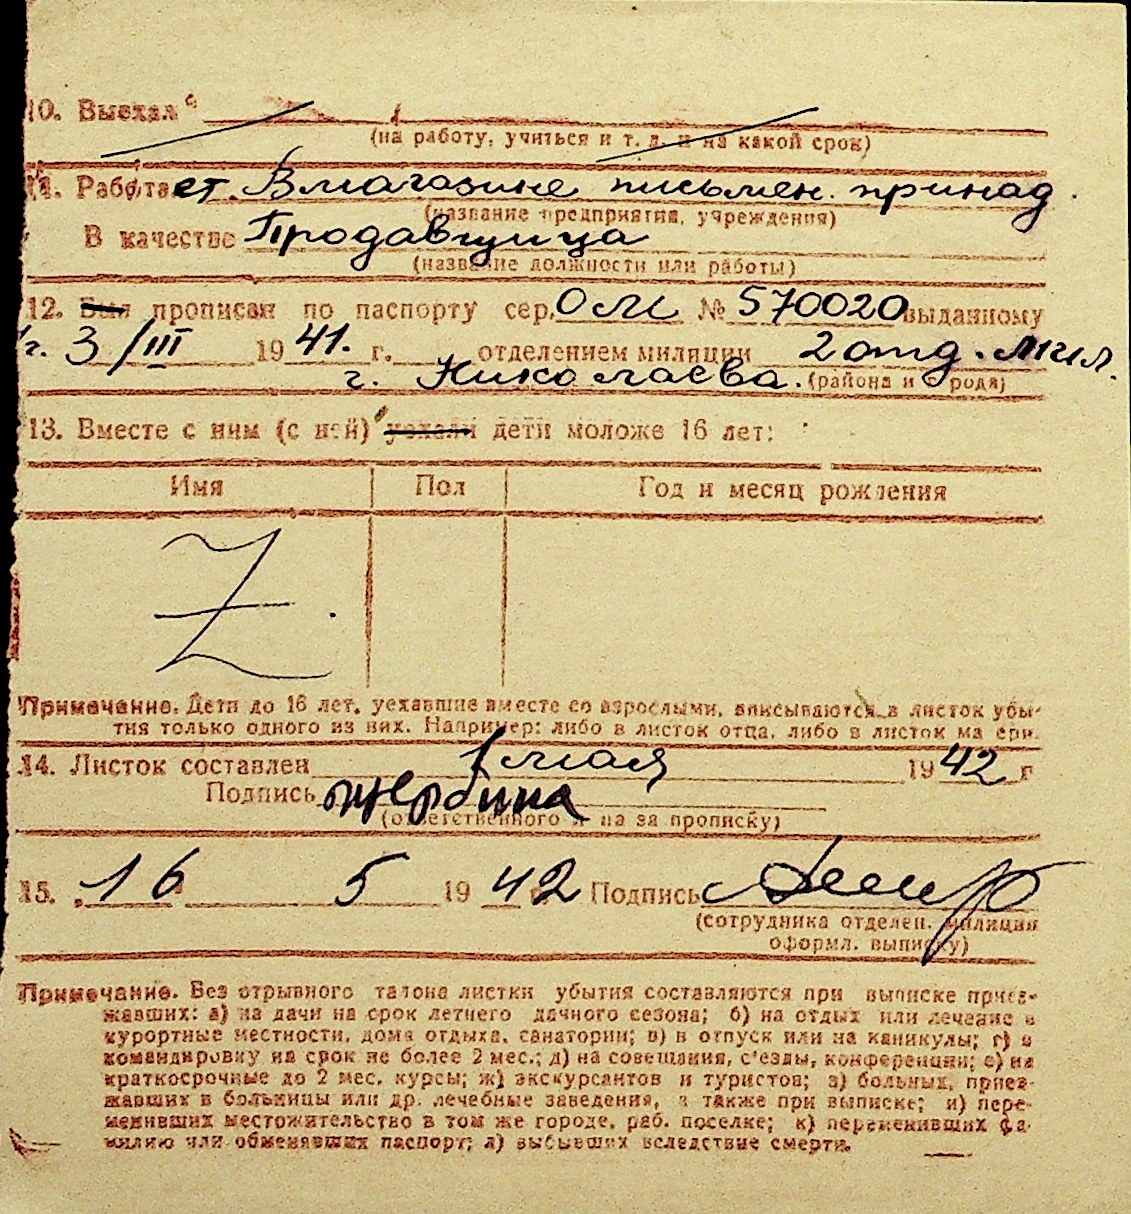 10. Выехал
(на работу, учиться и т. д. и на какой срок)
11. Работает. В магазине письмен. принад.
(название предприятия, учреждения)
В качестве Продавщица
(название должности или работы)
12. Был прописан по паспорту сер. ОМ № 570020 выданному
г. 3/III 1941. г. отделением милиции 2 отд. мил.
г. Николаева. (района и города)
13. Вместе с ним (с ней) уехали дети моложе 16 лет:
Имя Пол Год и месяц рождения
Z
Примечание. Дети до 16 лет, уехавшие вместе со взрослыми, вписываются в листок убы-
тия только одного из них. Например: либо в листок отца, либо в листок матери.
14. Листок составлен 1 мая 1942 г
Подпись Щербина
(ответственного л на за прописку)
15. 16 5 1942 Подпись
(сотрудника отделен. милиции
оформл. выписку)
Примечание. Без отрывного талона листки убытия составляются при выписке приез-
жавших: а) на дачи на срок летнего дачного сезона; б) на отдых или лечение в
курортные местности, дома отдыха, санатории; в) в отпуск или на каникулы; г) в
командировку на срок не более 2 мес.; д) на совещания, с'езды, конференции; е) на
краткосрочные до 2 мес. курсы; ж) экскурсантов и туристов; з) больных, приез-
жавших в больницы или др. лечебные заведения, а также при выписке; и) пере-
менивших местожительство в том же городе, раб. поселке; к) переменивших фа-
милию или обменявших паспорт; л) выбывших вследствие смерти.